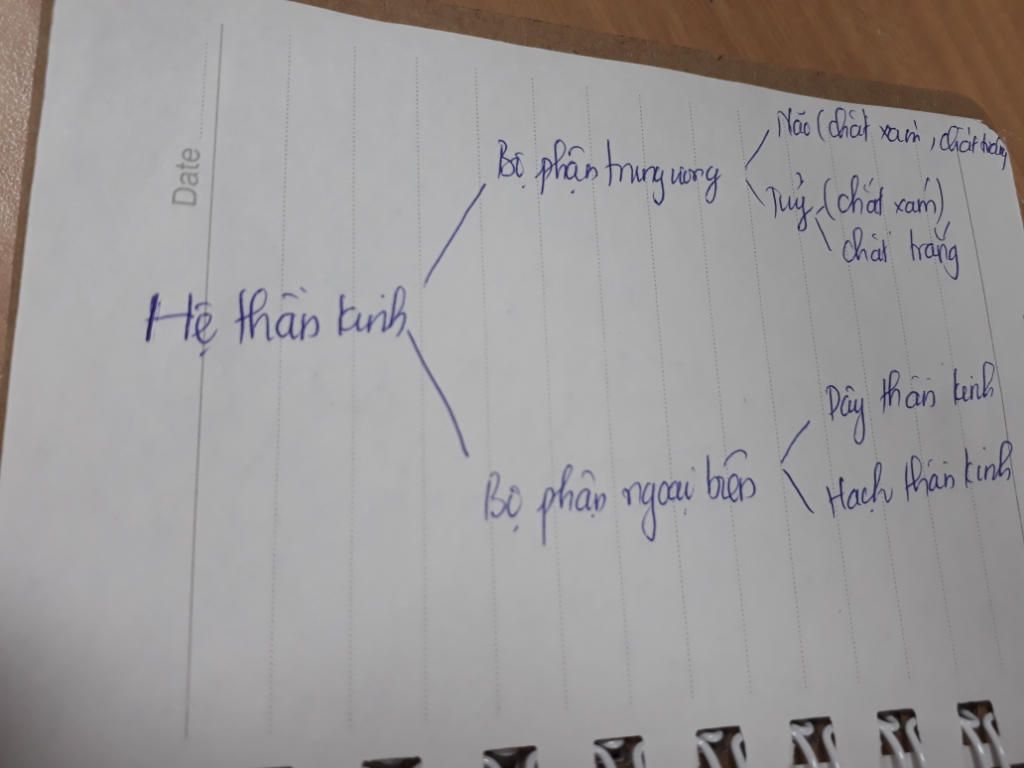 Date
Não (chất xám, chất trắng
Bộ phận trung ương
Tuỷ (chất xám)
chất trắng
Hệ thần kinh
Dây thần kinh
Bộ phận ngoại biên
Hạch thần kinh